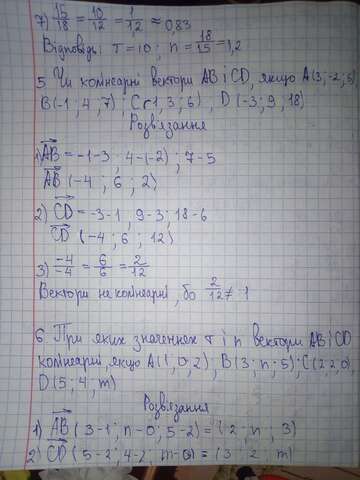 7) 15/18 = 10/12 = 1/1,2 ≈ 0,83
Відповідь: т = 10 ; n = 18/15 = 1,2
5. Чи колінеарні вектори AB і CD, якщо A(3; -2; 5)
B(-1; 4; 7) ; C(1; 3; 6) ; D(-3; 9; 18)
Розв'язання
1) AB = -1-3 ; 4-(-2) ; 7-5
AB (-4 ; 6 ; 2)
2) CD = -3-1 ; 9-3 ; 18-6
CD (-4 ; 6 ; 12)
3) -4/-4 = 6/6 = 2/12
Вектори не колінеарні, бо 2/12 ≠ 1
6 При яких значеннях т і n вектори AB і CD
колінеарні, якщо A(1; 0; 2) ; B(3; n; 5) ; C(2; 2; 0)
D(5; 4; m)
Розв'язання
1) AB (3-1 ; n-0 ; 5-2) = (2 ; n ; 3)
2) CD (5-2 ; 4-2 ; m-0) = (3 ; 2 ; m)